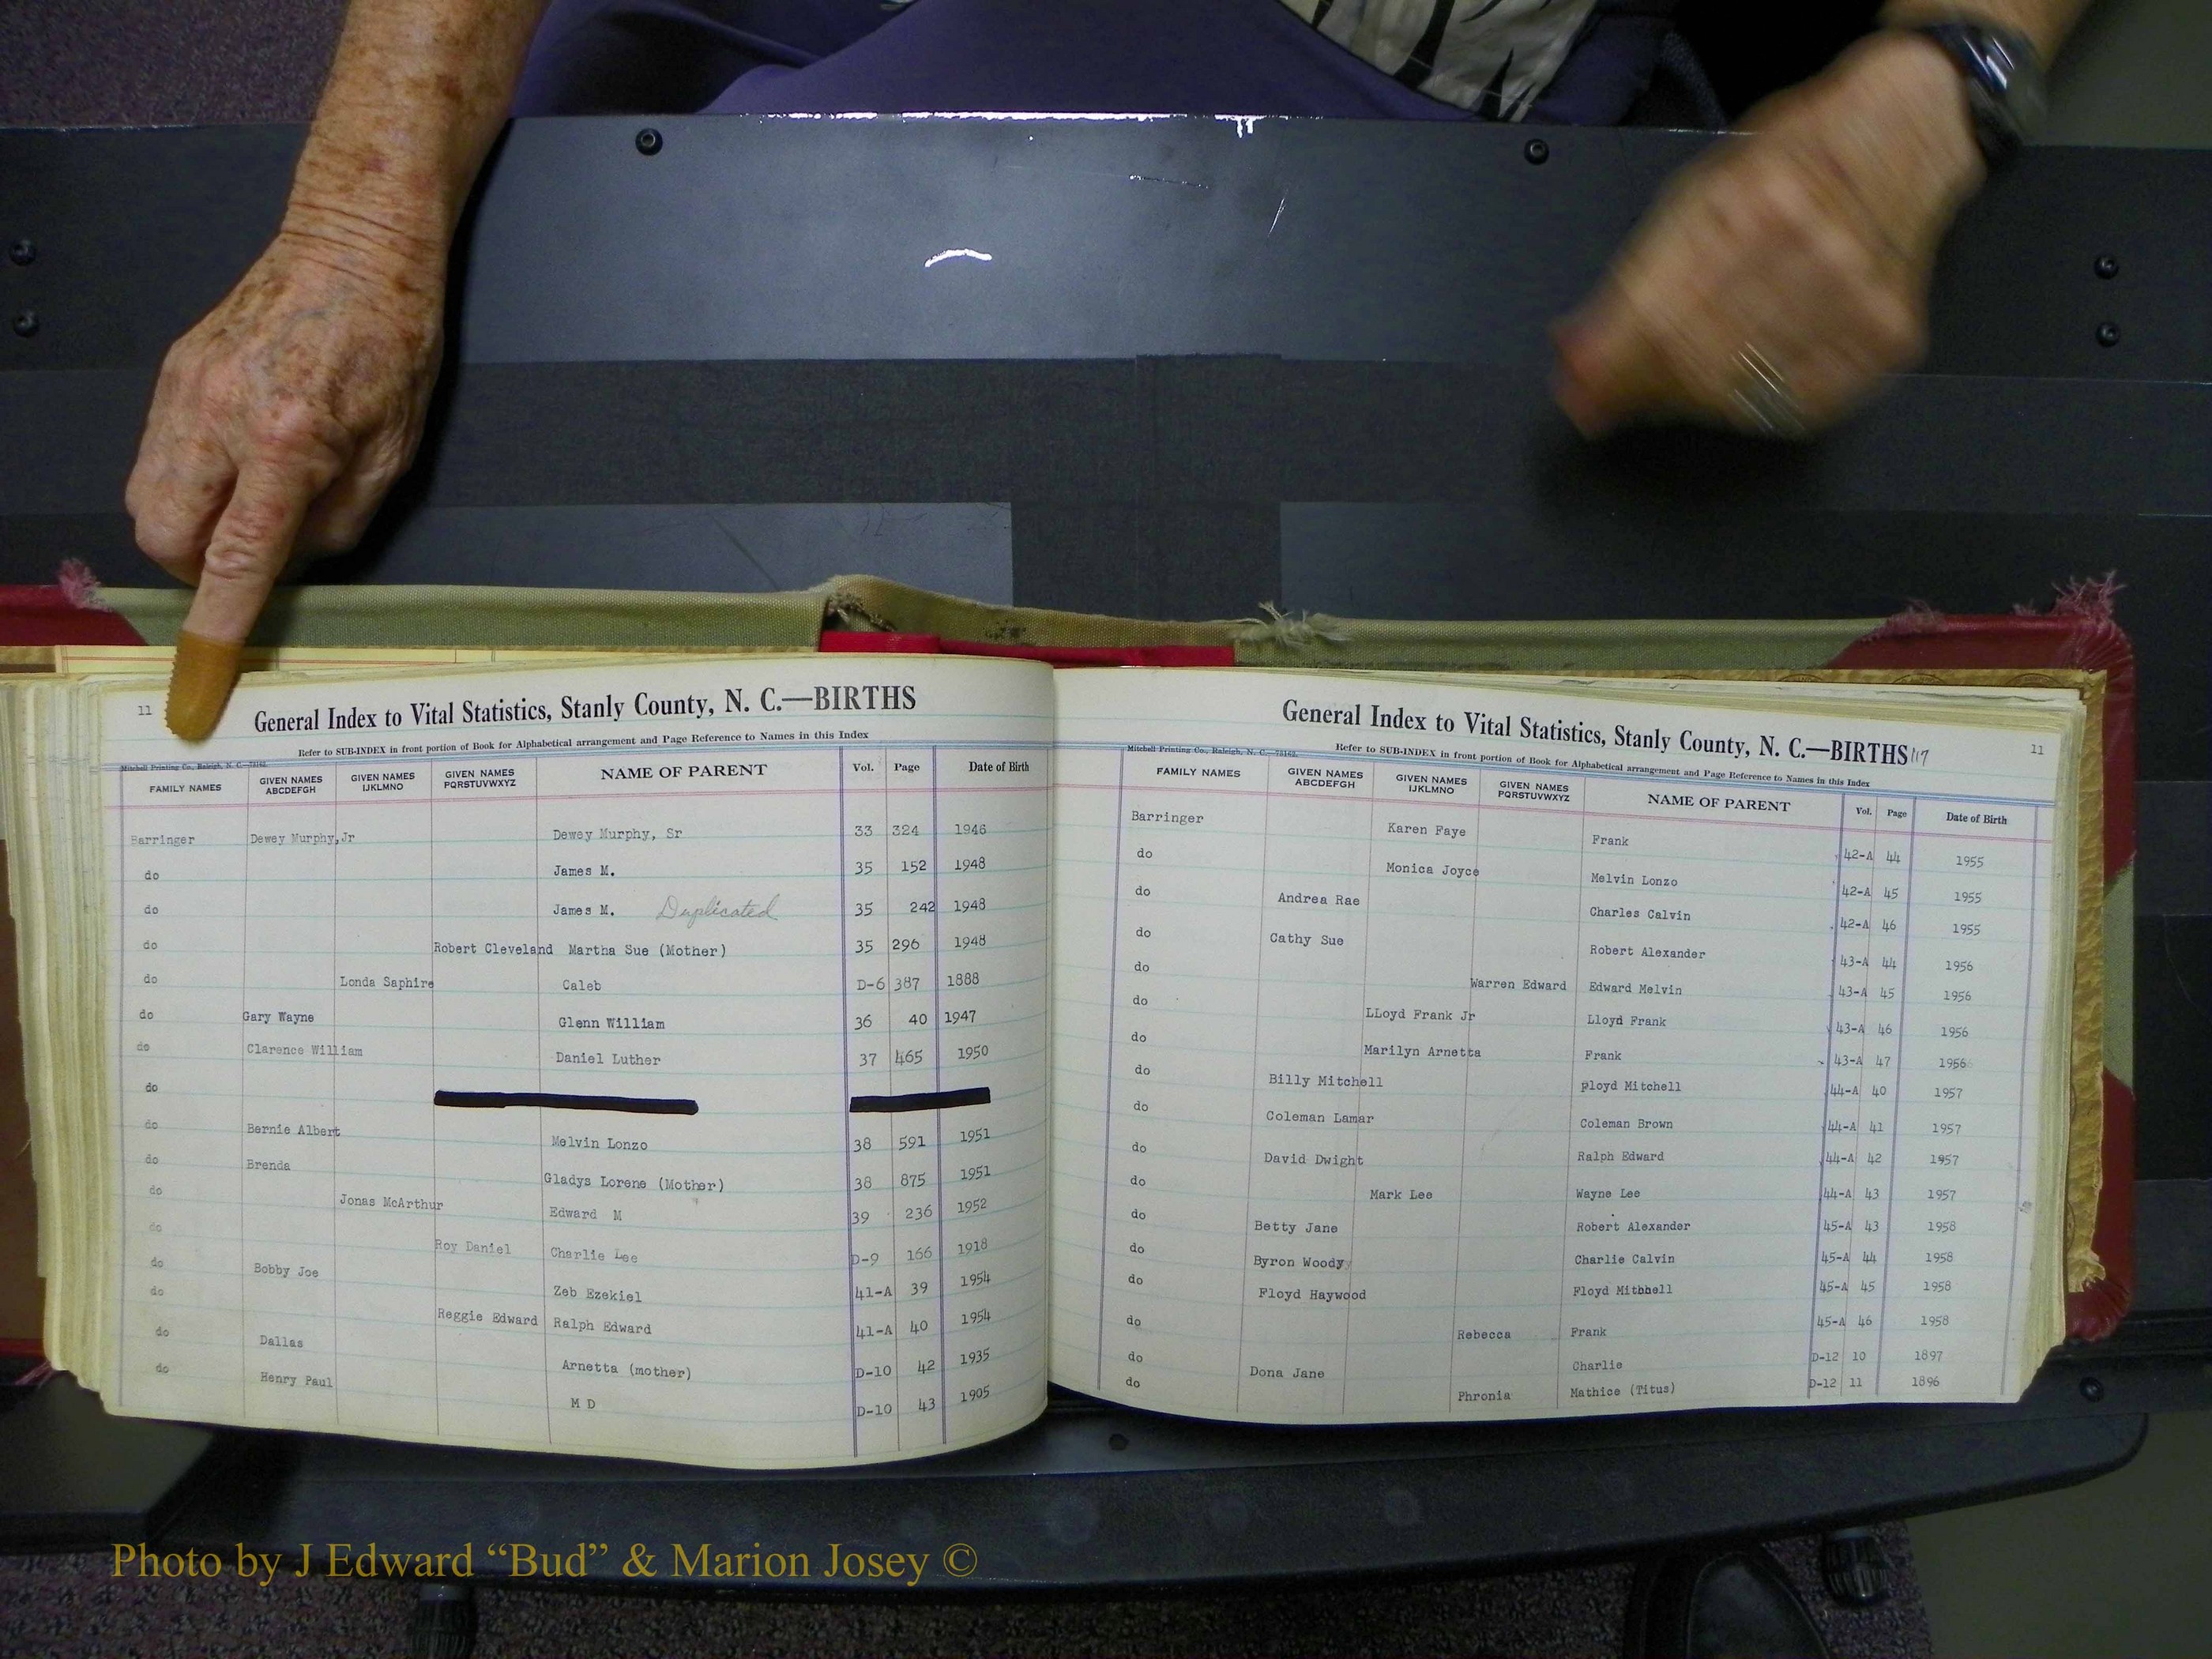 11
General Index to Vital Statistics, Stanly County, N. C.—BIRTHS
Refer to SUB-INDEX in front portion of Book for Alphabetical arrangement and Page Reference to Names in this Index
Mitchell Printing Co., Raleigh, N. C.—75162.
FAMILY NAMES GIVEN NAMES ABCDEFGH GIVEN NAMES IJKLMNO GIVEN NAMES PQRSTUVWXYZ NAME OF PARENT Vol. Page Date of Birth
Barringer Dewey Murphy,Jr Dewey Murphy, Sr 33 324 1946
do James M. 35 152 1948
do James M. Duplicated 35 242 1948
do Robert Cleveland Martha Sue (Mother) 35 296 1948
do Londa Saphire Caleb D-6 387 1888
do Gary Wayne Glenn William 36 40 1947
do Clarence William Daniel Luther 37 465 1950
do
do Bernie Albert Melvin Lonzo 38 591 1951
do Brenda Gladys Lorene (Mother) 38 875 1951
do Jonas McArthur Edward M 39 236 1952
do Roy Daniel Charlie Lee D-9 166 1918
do Bobby Joe Zeb Ezekiel 41-A 39 1954
do Reggie Edward Ralph Edward 41-A 40 1954
do Dallas Arnetta (mother) D-10 42 1935
do Henry Paul M D D-10 43 1905
General Index to Vital Statistics, Stanly County, N. C.—BIRTHS 117
11
Refer to SUB-INDEX in front portion of Book for Alphabetical arrangement and Page Reference to Names in this Index
Mitchell Printing Co., Raleigh, N. C.—75162.
FAMILY NAMES GIVEN NAMES ABCDEFGH GIVEN NAMES IJKLMNO GIVEN NAMES PQRSTUVWXYZ NAME OF PARENT Vol. Page Date of Birth
Barringer Karen Faye Frank 42-A 44 1955
do Monica Joyce Melvin Lonzo 42-A 45 1955
do Andrea Rae Charles Calvin 42-A 46 1955
do Cathy Sue Robert Alexander 43-A 44 1956
do Warren Edward Edward Melvin 43-A 45 1956
do LLoyd Frank Jr Lloyd Frank 43-A 46 1956
do Marilyn Arnetta Frank 43-A 47 1956
do Billy Mitchell Floyd Mitchell 44-A 40 1957
do Coleman Lamar Coleman Brown 44-A 41 1957
do David Dwight Ralph Edward 44-A 42 1957
do Mark Lee Wayne Lee 44-A 43 1957
do Betty Jane Robert Alexander 45-A 43 1958
do Byron Woody Charlie Calvin 45-A 44 1958
do Floyd Haywood Floyd Mitbhell 45-A 45 1958
do Rebecca Frank 45-A 46 1958
do Dona Jane Charlie D-12 10 1897
do Phronia Mathice (Titus) D-12 11 1896
Photo by J Edward “Bud” & Marion Josey ©